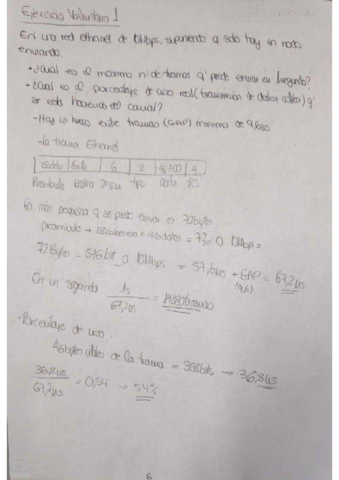 Ejercicio Voluntario 1
En una red ethernet de 10Mbps, suponiendo q solo hay un nodo
enviando.
• ¿Cual es el maximo nº de tramas q puede enviar en 1 segundo?
• ¿Cual es el porcentaje de uso real (transmision de datos utiles) q
se está haciendo del canal?
- Hay un hueco entre tramas (GAP) minimo de 9,6us
- La trama Ethernet
6 2 46-1500 4
Preambulo destino origen tipo datos
La más pequeña q se puede enviar es 72bytes
preambulo + 18 cabecera + 46 datos = 72 a 10Mbps =
72Bytes = 576bit a 10Mbps = 57,6us + GAP = 67,2us
(9,6)
En un segundo 1s / 67,2us = tramas
- Porcentaje de uso:
46bytes utiles de la trama = 368bits → 36,8us
36,8us / 67,2us = 0,54 → 54%
6